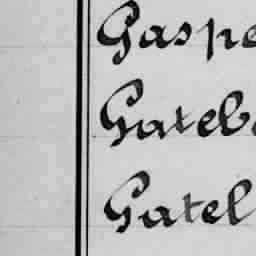 Gaspe
Gateb
Gatel